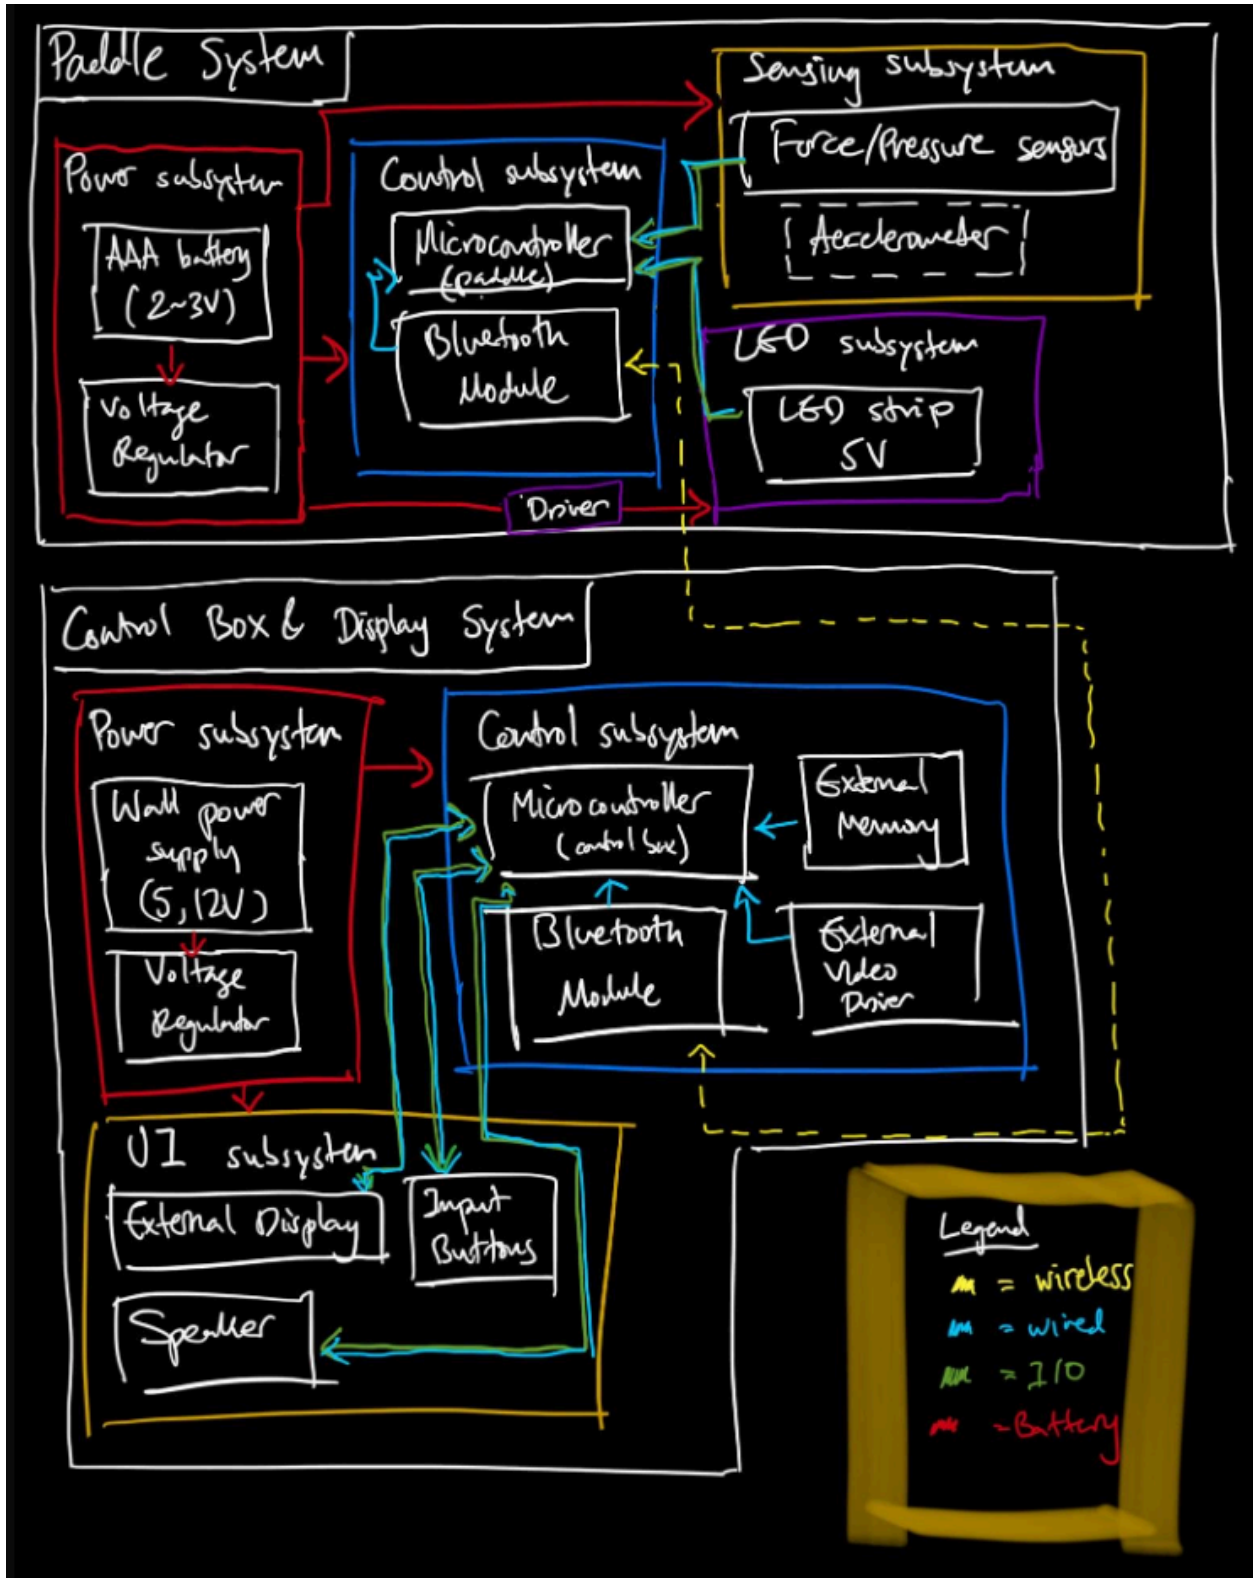 Paddle System
Power subsystem
AAA battery
(2~3V)
Voltage
Regulator
Control subsystem
Microcontroller
(paddle)
Bluetooth
Module
Sensing subsystem
Force/Pressure sensors
Accelerometer
LED subsystem
LED strip
5V
Driver
Control Box & Display System
Power subsystem
Wall power
supply
(5, 12V)
Voltage
Regulator
Control subsystem
Microcontroller
(control box)
External
Memory
Bluetooth
Module
External
Video
Driver
UI subsystem
External Display
Input
Buttons
Speaker
Legend
= wireless
= wired
= I/O
= Battery